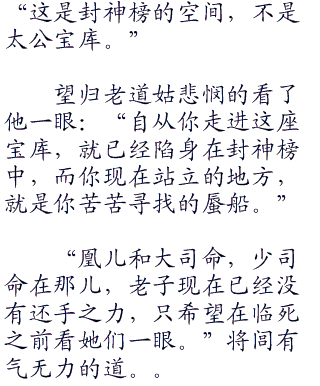 “这是封神榜的空间，不是
太公宝库。”
望归老道姑悲悯的看了
他一眼：“自从你走进这座
宝库，就已经陷身在封神榜
中，而你现在站立的地方，
就是你苦苦寻找的蜃船。”
“凰儿和大司命，少司
命在那儿，老子现在已经没
有还手之力，只希望在临死
之前看她们一眼。”将闾有
气无力的道。。